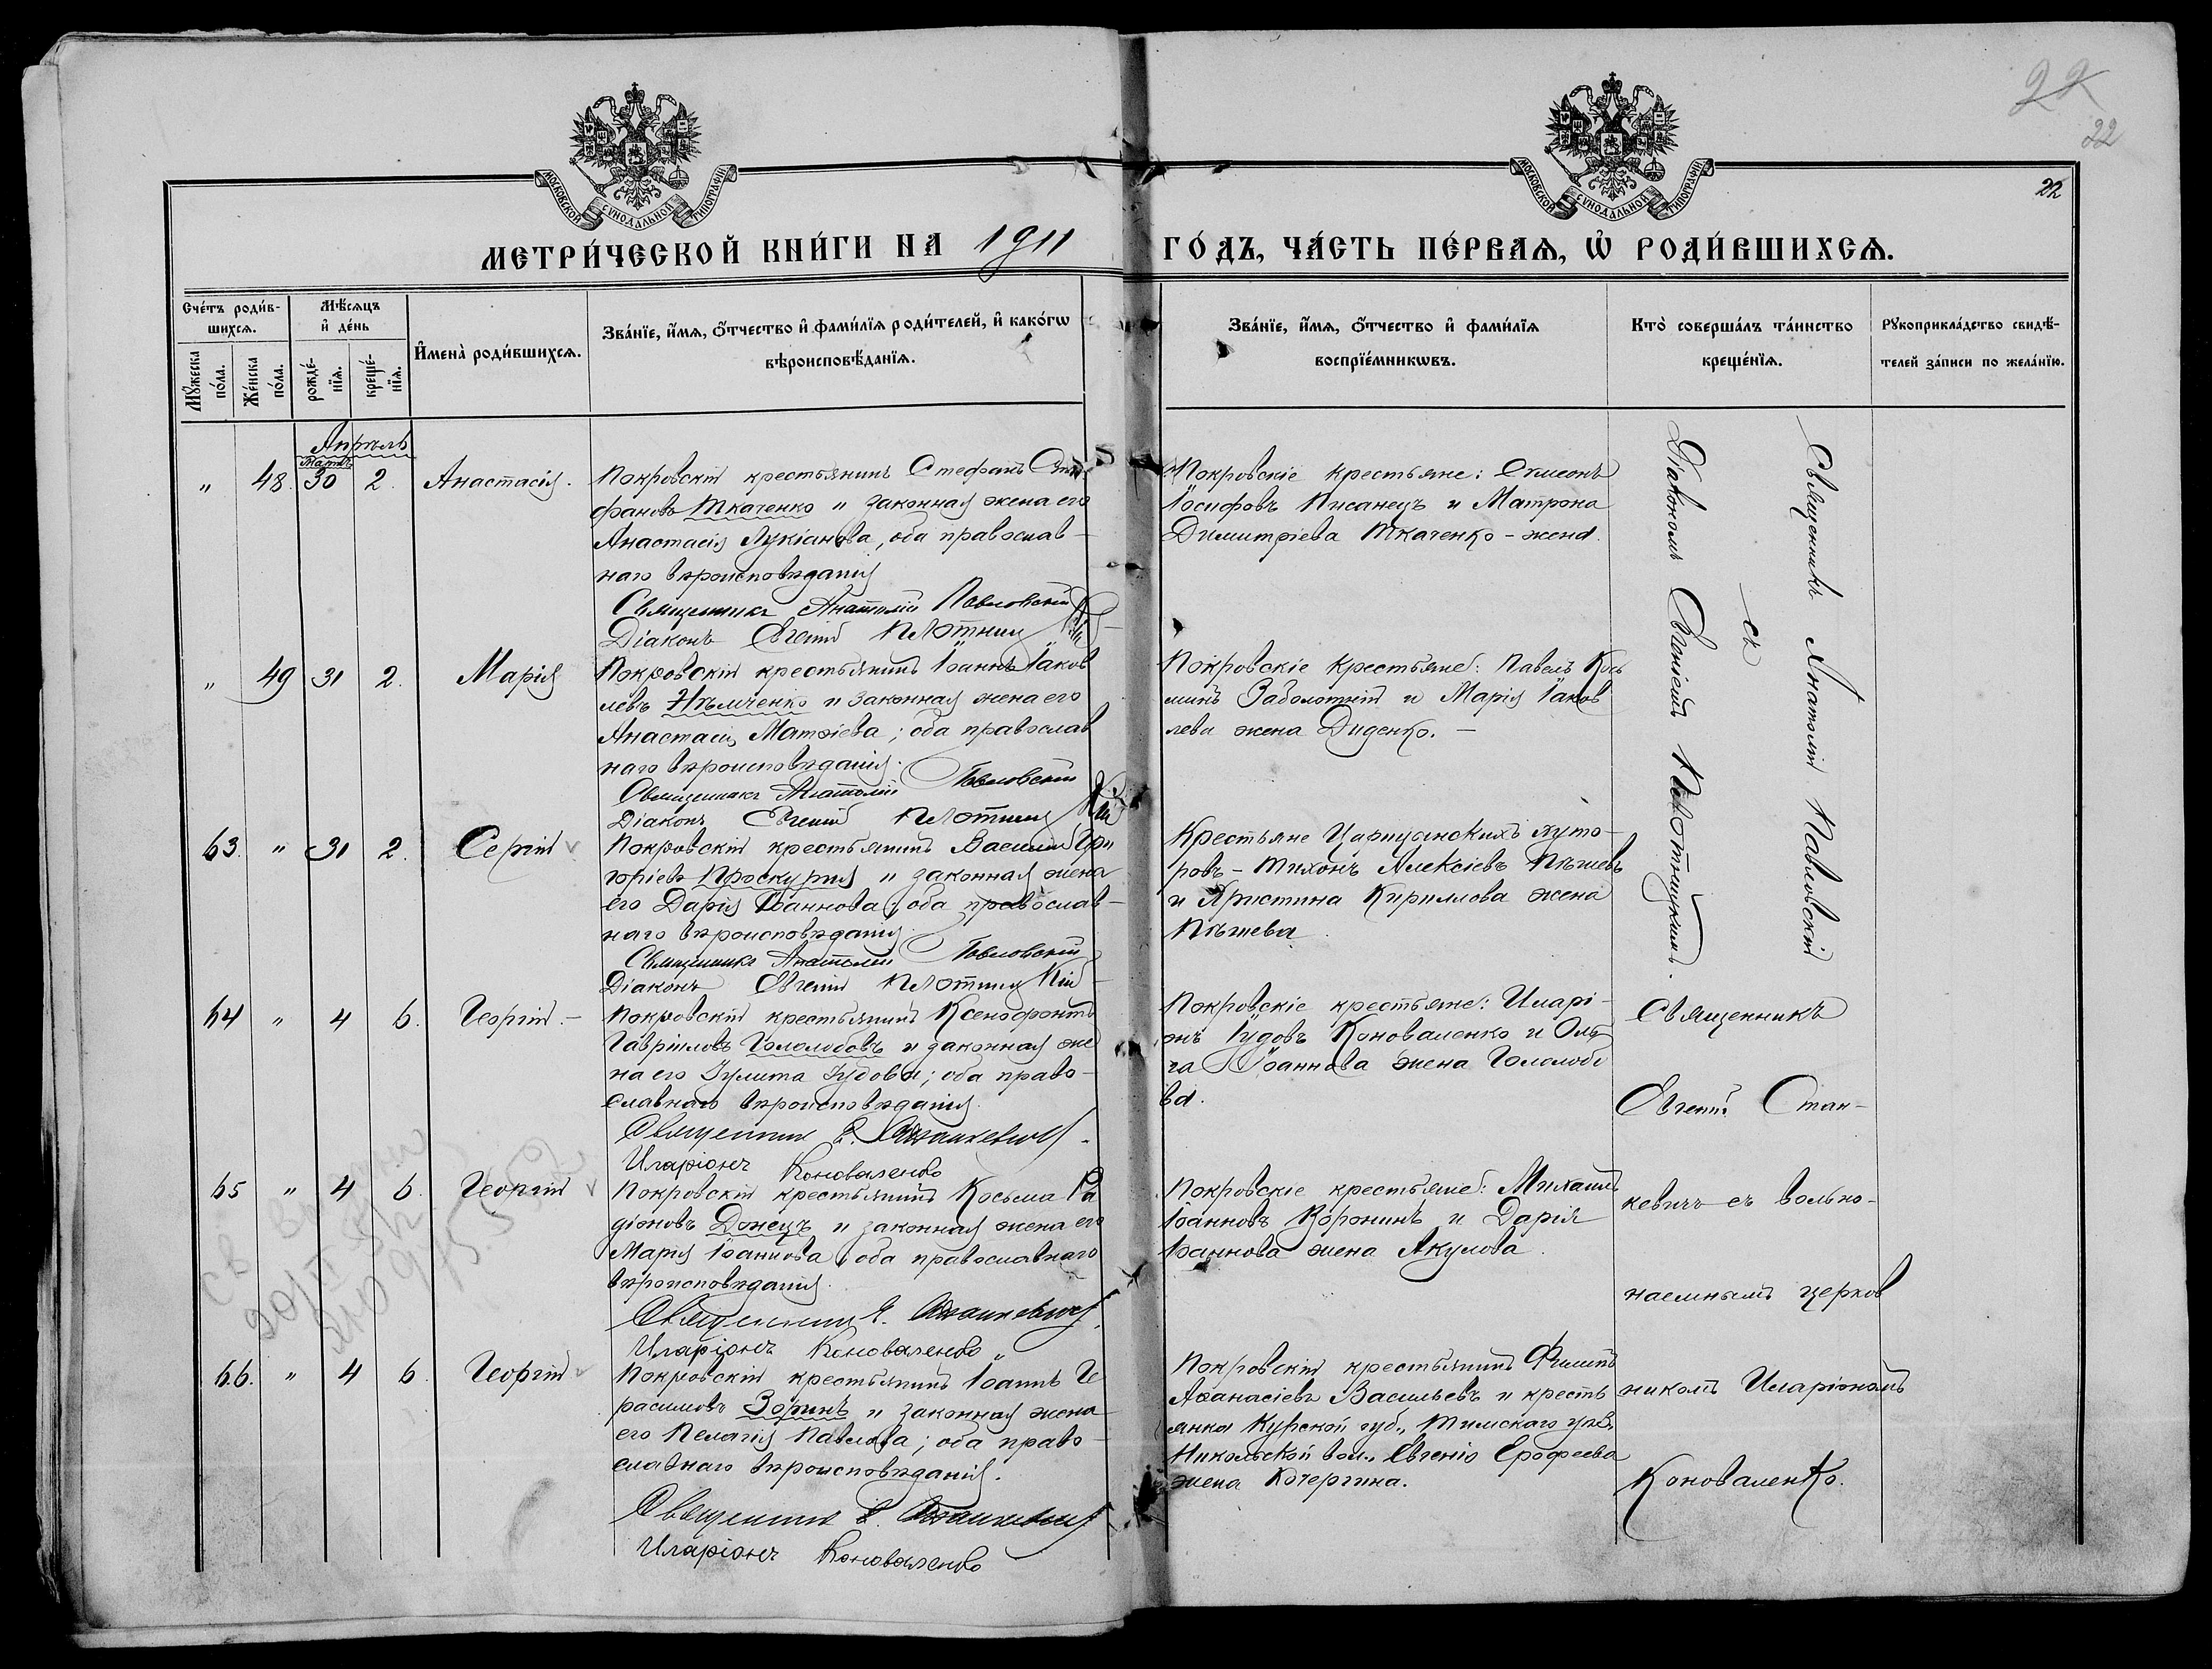 22
22
22
МОСКОВСКОЙ СѴНОДАЛЬНОЙ ТИПОГРАФІИ
МОСКОВСКОЙ СѴНОДАЛЬНОЙ ТИПОГРАФІИ
МЕТРИ́ЧЕСКОЙ КНИ́ГИ НА 1911 ГО́ДЪ, ЧА́СТЬ ПЕ́РВАѦ, Ѡ҆ РОДИ́ВШИХСѦ.
Сче́тъ роди́в-
шихсѧ.
Мꙋ́жеска
по́ла.
Же́нска
по́ла.
Мѣ́сѧцъ
и҆ де́нь
рожде́-
нїѧ.
креще́-
нїѧ.
И҆мена̀ роди́вшихсѧ.
Зва́нїе, и҆́мѧ, ѻ҆́тчество и҆ фами́лїѧ роди́телей, и҆ како́гѡ
вѣроисповѣ́данїѧ.
Зва́нїе, и҆́мѧ, ѻ҆́тчество и҆ фами́лїѧ
воспрїе́мникѡвъ.
Кто̀ соверша́лъ та́инство
креще́нїѧ.
Рꙋкоприкла́дство свидѣ́-
телей за́писи по жела́нїю.
Апрѣль
Мартъ
" 48. 30 2. Анастасія.
Покровскій крестьянинъ Стефанъ Сте-
фановъ Ткаченко и законная жена его
Анастасія Лукіанова, оба православ-
наго вѣроисповѣданія
Священникъ Анатолій Павловскій
Діаконъ Евгеній
Покровскіе крестьяне: Симеонъ
Іосифовъ Писанецъ и Матрона
Димитріева Ткаченко - жена.
" 49 31 2. Марія
Покровскій крестьянинъ Іоаннъ Іаков
левъ Нѣмченко и законная жена его
Анастасія Матѳіева; оба православ
наго вѣроисповѣданія.
Священникъ Анатолій Павловскій
Діаконъ Евгеній
Покровскіе крестьяне: Павелъ Кось
минъ Заболотній и Марія Іаков
лева жена Диденко. -
63. " 31 2. Сергій
Покровскій крестьянинъ Василій Гри
горіевъ Проскурня и законная жена
его Дарія Іоаннова; оба православ-
наго вѣроисповѣданія.
Священникъ Анатолій Павловскій
Діаконъ Евгеній
Крестьяне Царицынскихъ хуто-
ровъ - Тихонъ Алексіевъ
и Христина Кириллова жена
Священникъ Анатолій Павловскій
съ
Діакономъ Евгеніемъ
64 " 4 6. Георгій. -
Покровскій крестьянинъ Ксенофонтъ
Гавріиловъ Гололобовъ и законная же
на его Іулита Іудова; оба право-
славнаго вѣроисповѣданія.
Священникъ Е. Станкевичъ.
Иларіонъ Коноваленко
Покровскіе крестьяне: Иларі-
онъ Іудовъ Коноваленко и Оль
га Іоаннова жена Гололобо
ва.
65 " 4 6. Георгій
Покровскій крестьянинъ Косьма Ра
діоновъ Донецъ и законная жена его
Марія Іоаннова, оба православнаго
вѣроисповѣданія.
Священникъ Е. Станкевичъ.
Иларіонъ Коноваленко
Покровскіе крестьяне: Михаилъ
Іоанновъ Воронинъ и Дарія
Іоаннова жена Акулова.
66. " 4 6. Георгій
Покровскій крестьянинъ Іоаннъ Ге
расимовъ Зоринъ и законная жена
его Пелагія Павлова; оба право-
славнаго вѣроисповѣданія.
Священникъ Е. Станкевичъ
Иларіонъ Коноваленко
Покровскій крестьянинъ Филиппъ
Аѳанасіевъ Васильевъ и кресть
янка Курской губ., Тимскаго уѣз.
Никольской вол., Евгенія Ерофеева
жена Кочергина.
Священникъ
Евгеній Стан-
кевичъ съ вольно-
наемнымъ церков
никомъ Иларіономъ
Коноваленко.